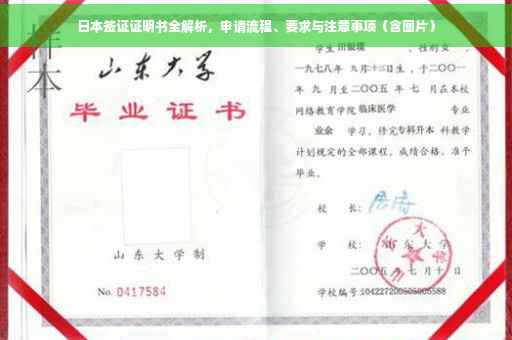 日本签证证明书全解析，申请流程、要求与注意事项（含图片）
样本
山东大学
毕业证书
山东大学制
No. 0417584
学生 田银環 ，性别 女 ，
一九七八年 九月十三日生，于二〇〇一
年 九 月至二〇〇五 年 七 月在本校
网络教育学院 临床医学 专业
业余 学习，修完专科升本 科教学
计划规定的全部课程，成绩合格，准予
毕业。
校 长：
学 校： 山东大学
二〇〇五 年 七 月 十 日
学校编号：104227200505005588